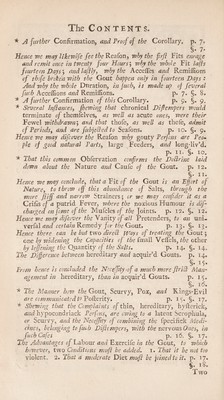 The CONTENTS.
* A further Confirmation, and Proof of the Corollary, p. 7.
§. 7.
Hence we may likewise see the Reason, why the first Fits enrage
and remit once in twenty four Hours; why the whole Fit lasts
fourteen Days; and lastly, why the Accesses and Remissions
of these broken with the Gout happen only in fourteen Days:
And why the whole Duration, in such, is made up of several
such Accessions and Remissions. p. 7. §. 8.
* A further Confirmation of this Corollary. p. 9. §. 9.
* Several Instances, shewing that chronical Distempers would
terminate of themselves, as well as acute ones, were their
Fewel withdrawn; and that those, as well as these, admit
of Periods, and are subjected to Seasons. p. 10. §. 9.
Hence we may discover the Reason why gouty Persons are Peo-
ple of good natural Parts, large Feeders, and long-liv'd.
p. 11. §. 10.
* That this common Observation confirms the Doctrine laid
down about the Nature and Cause of the Gout. p. 12.
§. 11.
Hence we may conclude, that a Fit of the Gout is an Effort of
Nature, to throw off this abundance of Salts, through the
more stiff and narrow Strainers; or we may consider it as a
Crisis of a putrid Fever, where the noxious Humour is dis-
charged in some of the Muscles of the Joints. p. 12. §. 12.
Hence we may discover the Vanity of all Pretenders, to an uni-
versal and certain Remedy for the Gout. p. 13. §. 13.
Hence there can be but two direct Ways of treating the Gout;
one by widening the Capacities of the small Vessels, the other
by lessening the Quantity of the Salts. p. 14. §. 14.
The Difference between hereditary and acquir'd Gouts. p. 14.
§. 15.
From hence is concluded the Necessity of a much more strict Man-
agement in hereditary, than in acquir'd Gouts. p. 15.
§. 16.
* The Manner how the Gout, Scurvy, Pox, and Kings-Evil
are communicated to Posterity. p. 15. §. 17.
* Shewing that the Complaints of thin, hereditary, hysterick,
and hypocondriack Persons, are owing to a latent Scrophula,
or Scurvy, and the Necessity of combining the specifick Medi-
cines, belonging to such Distempers, with the nervous Ones, in
such Cases p. 16. §. 17.
The Advantages of Labour and Exercise in the Gout, to which
however, two Conditions must be added. 1. That it be not too
violent. 2. That a moderate Diet must be joined to it. p. 17.
§. 18.
Two